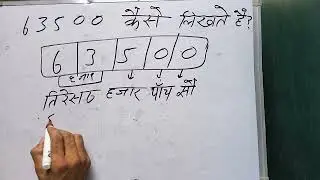 63500 कैसे लिखते है?
6 3 5 0 0
हजार
तिरेसठ हजार पाँच सौ